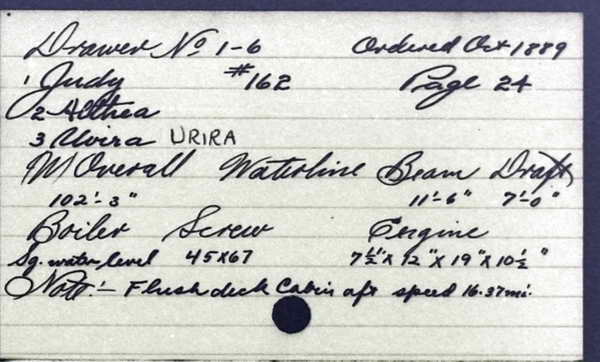 Drawer No 1-6 Ordered Oct 1889
1 Judy #162 Page 24
2 Althea
3 Uvira URIRA
M Overall Waterline Beam Draft
102'-3" 11'-6" 7'-0"
Boiler Screw Engine
Sq. water level 45X67 7½"X 12"X 19"X 10½"
Note:- Flush deck Cabin aft speed 16.37mi.